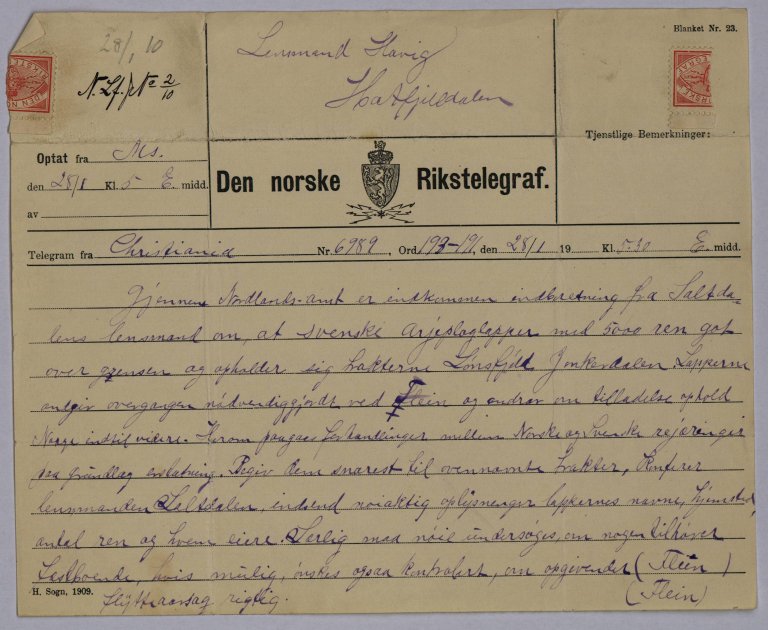 Blanket Nr. 23.
28/1, 10
N. Lf. No 2/10
Lensmand Havig
Hatfjelldalen
Tjenstlige Bemerkninger:
Optat fra Ms.
den 28/1 Kl. 5 E. midd.
av
Den norske Rikstelegraf.
Telegram fra Christiania Nr. 6989, Ord 193-191, den 28/1 19 Kl. 5.30 E. midd.
Gjennem Nordlands amt er indkommen indberetning fra Saltda-
lens lensmand om, at svenske Arjeploglapper med 5000 ren gåt
over grensen og opholder sig trakterne Lønsfjeld Junkerdalen Lapperne
angiv overgangen nødvendiggjordt ved Flein og andrar om tilladelse ophold
Norge indtil videre. Herom paagaar forhandlinger mellem Norske og Svenske rejæringer
paa grundlag erstatning. Begiv dem snarest til ovennævnte trakter, Konferer
lensmanden Saltdalen, indsend nøiaktig oplysninger lappernes navne, hjemsted
antal ren og hvem eiere. Særlig maa nøie undersøges, om nogen tilhører
fastboende, hvis mulig, ønskes ogsaa kontrolert, om opgivendet (Flein)
flytteaarsag rigtig. (Flein)
H. Sogn, 1909.